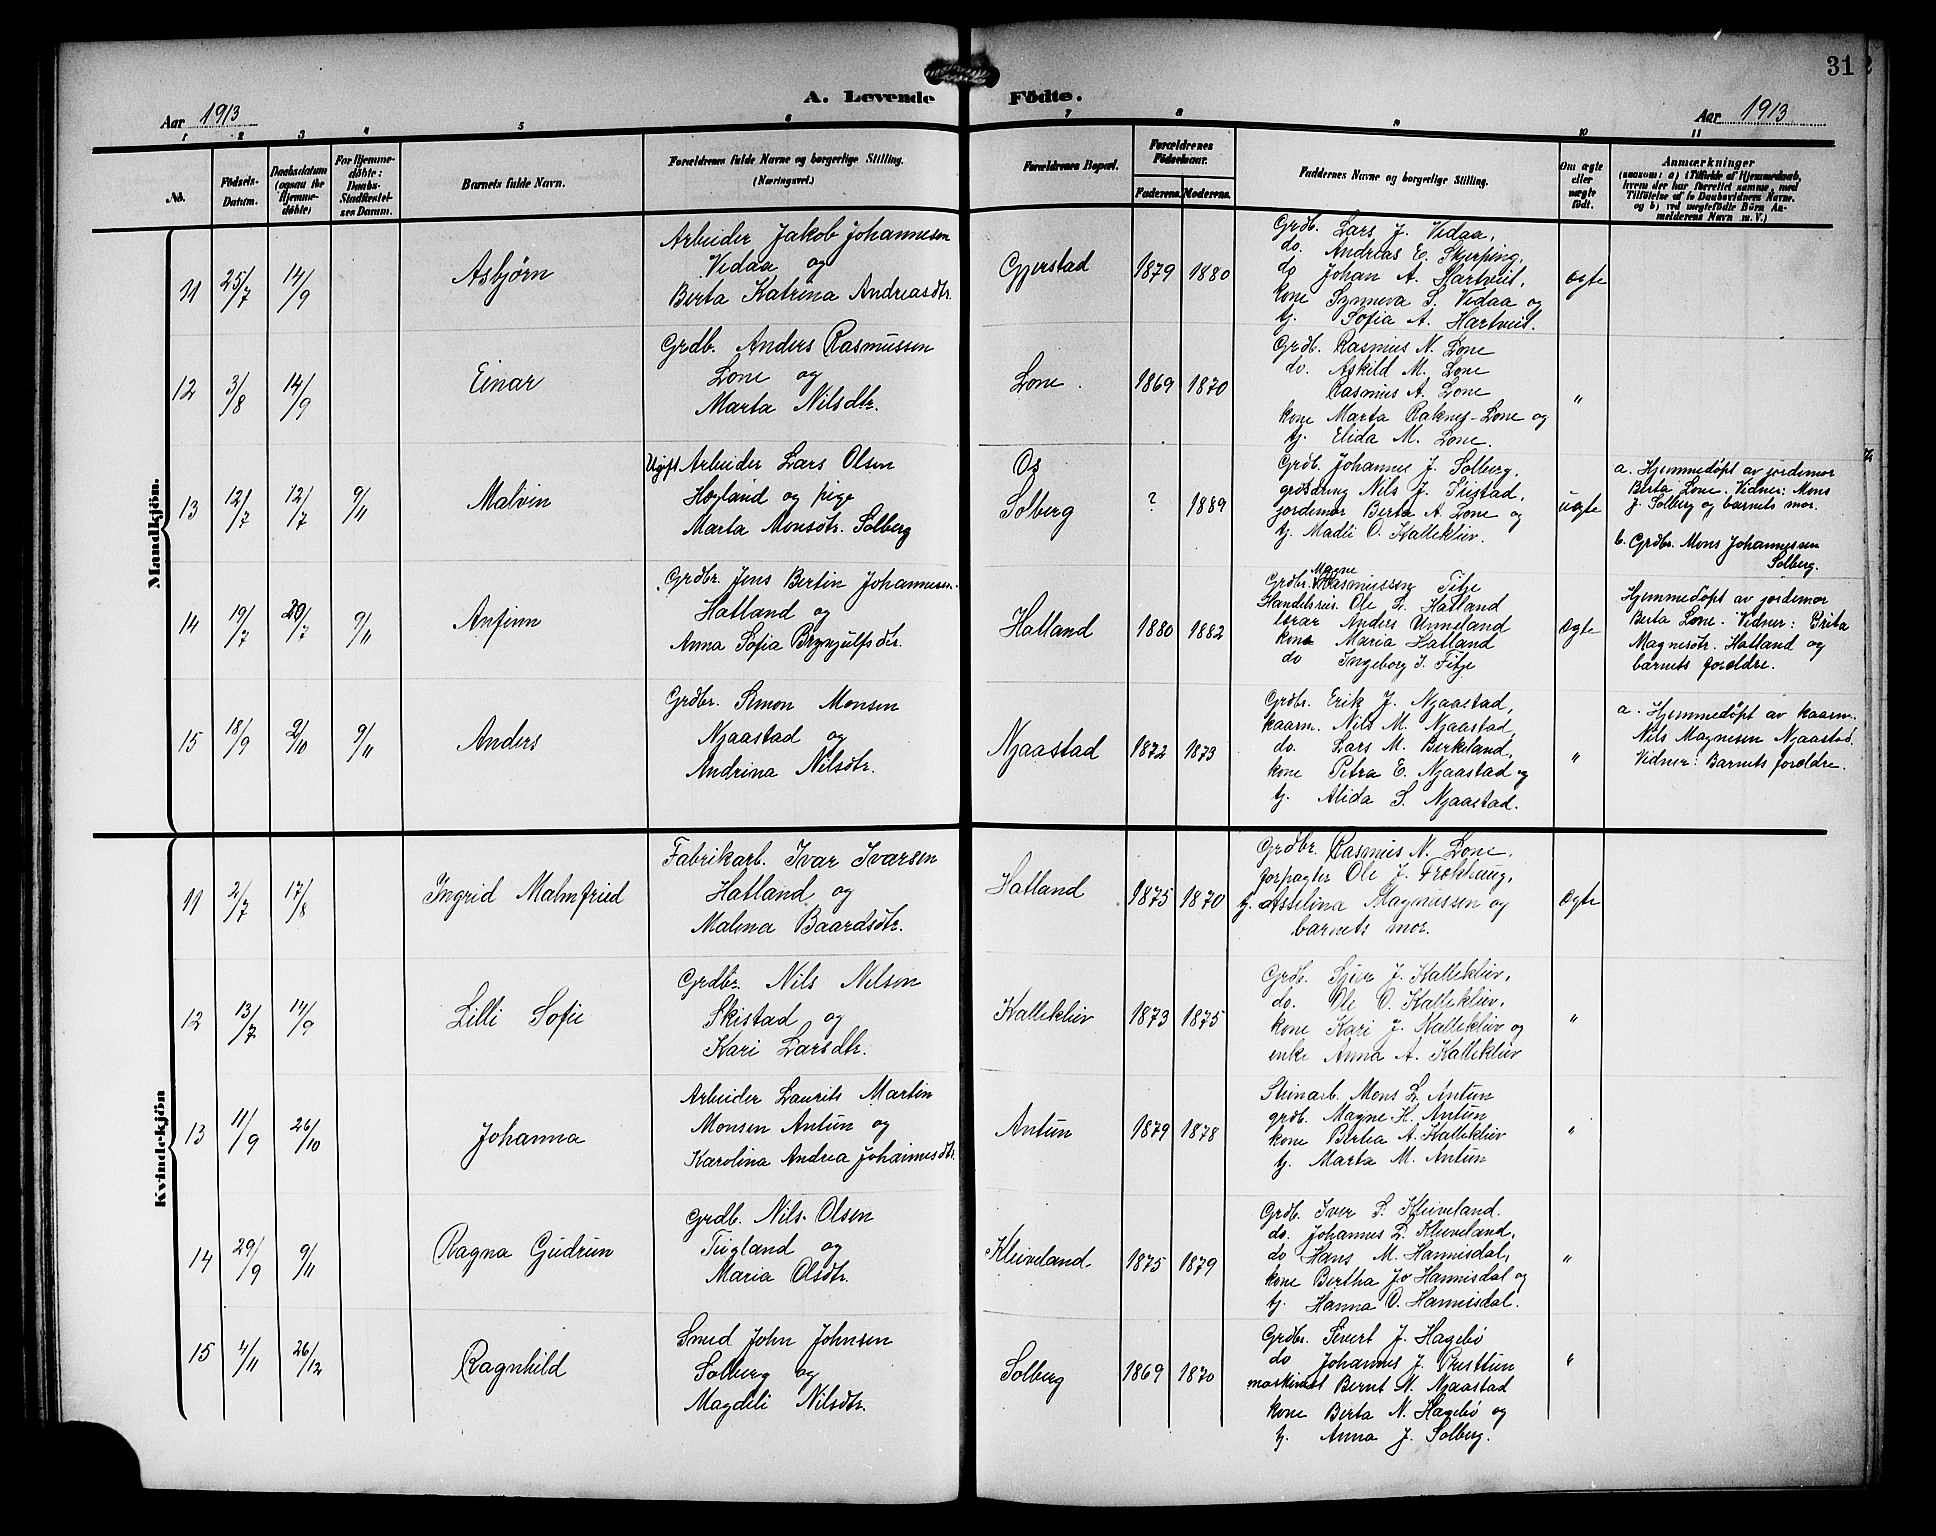 31
A. Levende Födte.
Aar 1913
Aar 1913
1 2 3 4 5 6 7 8 9 10 11
No.
Födsels-Datum.
Daabsdatum (ogsaa for Hjemmedöbte)
For Hjemmedöbte: Daabs-Stadfæstelses Datum.
Barnets fulde Navn.
Forældrenes fulde Navne og borgerlige Stilling.
(Næringsvei.)
Forældrenes Bopæl.
Forældrenes Födselsaar.
Faderens. Moderens.
Faddernes Navne og borgerlige Stilling.
Om ægte eller uægte födt.
Anmærkninger
(saasom: a) i Tilfælde af Hjemmedaab, hvem der har forrettet samme, med Tilföielse af to Daabsvidners Navne, og b) ved uægtefödte Börn Anmelderens Navn m. V.)
Mandkjön.
11 25/7 14/9 Asbjørn
Arbeider Jakob Johannesen
Vedaa og
Berta Katrina Andreasdtr.
Gjerstad 1879 1880
Grdb. Lars J. Vedaa,
do. Andreas E. Skjerping,
do Johan A. Hartveit,
kone Synneva S. Vedaa og
tj. Sofia A. Hartveit.
ægte
12 3/8 14/9 Einar
Grdb. Anders Rasmussen
Lone og
Marta Nilsdtr.
Lone. 1869 1870
Grdb. Rasmus N. Lone
do. Askild M. Lone
Rasmus A. Lone
kone Marta Raknes-Lone og
tj. Elida M. Lone.
"
13 12/7 12/7 9/11 Malvin
Ugift Arbeider Lars Olsen
Høyland og pige
Marta Monsdtr. Solberg
Os
Solberg ? 1889
Grdb. Johannes J. Solberg,
Nils J.
jordemor Berta A. Lone og
tj. Madli O. Kallekleiv.
uægte
a. Hjemmedøpt av jordemor
Berta Lone. Vidner: Mons
J. Solberg og barnets mor.
b. Grdbr. Mons Johannessen
Solberg.
14 19/7 20/7 9/11 Anfinn
Grdbr. Jens Bertin Johannesen
Hatland og
Anna Sofia Brynjulfsdtr.
Hatland 1880 1882
Grdbr. Magne Rasmussen Fitje
Handelsreis. Ole L. Hatland
lærar Anders Unneland
kone Maria Hatland
do Ingeborg I. Fitje
Ægte
Hjemmedøpt av jordemor
Berta Lone. Vidner: Brita
Magnesdtr. Hatland og
barnets foreldre.
15 18/9 2/10 9/11 Anders
Grdbr. Simon Monsen
Njaastad og
Andrina Nilsdtr.
Njaastad 1872 1873
Grdbr. Erik J. Njaastad,
kaarm. Nils M. Njaastad,
do. Lars M. Birkeland,
kone Petra E. Njaastad og
tj. Alida S. Njaastad.
"
a. Hjemmedøpt av kaarm.
Nils Magnesen Njaastad.
Vidner: Barnets foreldre.
Kvindekjön
11 2/7 17/8 Ingrid Malmfried
Fabrikarb. Ivar Ivarsen
Hatland og
Malena Baardsdtr.
Hatland 1875 1870
Grdbr. Rasmus N. Lone,
forpagter Ole J. Frøkhaug,
tj. Asselina Magnussen og
barnets mor.
Ægte
12 13/7 14/9 Lilli Sofie
Grdbr. Nils Nilsen
Skistad og
Kari Larsdtr.
Kallekleiv 1873 1875
Grdb. Sjur J. Kallekleiv,
do. Ole O. Kallekleiv,
kone Kari J. Kallekleiv og
enke Anna A. Kallekleiv
"
13 11/9 26/10 Johanna
Arbeider Laurits Martin
Monsen Antun og
Karolina Andrea Johannesdtr.
Antun 1879 1878
Steinarb. Mons L. Antun
grdb. Magne H. Antun
kone Bertha A. Kallekleiv
tj. Marta M. Antun
"
14 29/9 9/11 Ragna Gudrun
Grdb. Nils Olsen
Tveitland og
Maria Olsdtr.
Kleiveland. 1875 1879
Grdb. Iver L. Kleiveland.
do. Johannes L. Kleiveland,
do Hans M. Hannisdal,
kone Bertha Jo Hannisdal og
tj. Hanna O. Hannisdal.
"
15 4/11 26/12 Ragnhild
Smed John Johnsen
Solberg og
Magdeli Nilsdtr.
Solberg 1869 1870
Grdbr. Sivert J. Hagebø
do Johannes J. Presttun
maskinist Bernt N. Njaastad
kone Berta N. Hagebø og
tj. Anna J. Solberg.
"